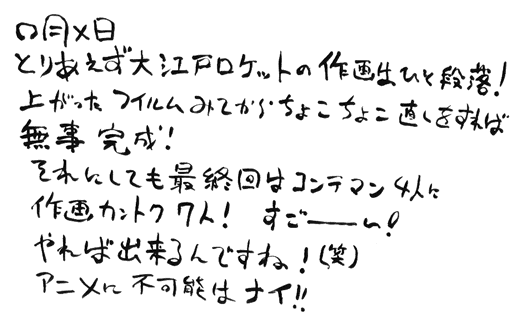 □月×日
とりあえず大江戸ロケットの作画はひと段落!
上がったフイルムみてからちょこちょこ直しをすれば
無事完成!
それにしても最終回はコンテマン4人に
作画カントク7人! すご――い!
やれば出来るんですね!(笑)
アニメに不可能はナイ!!